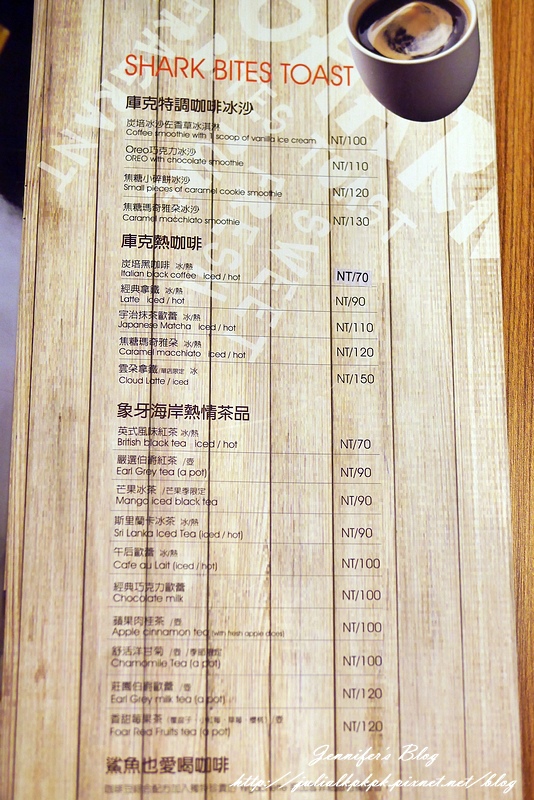 SHARK BITES TOAST
庫克特調咖啡冰沙
炭焙冰沙佐香草冰淇淋
Coffee smoothie with 1 scoop of vanilla ice cream NT/100
Oreo巧克力冰沙
OREO with chocolate smoothie NT/110
焦糖小碎餅冰沙
Small pieces of caramel cookie smoothie NT/120
焦糖瑪奇雅朵冰沙
Caramel macchiato smoothie NT/130
庫克熱咖啡
炭焙黑咖啡 冰/熱
Italian black coffee iced / hot NT/70
經典拿鐵 冰/熱
Latte iced / hot NT/90
宇治抹茶歐蕾 冰/熱
Japanese Matcha iced / hot NT/110
焦糖瑪奇雅朵 冰/熱
Caramel macchiato iced / hot NT/120
雲朵拿鐵/單店限定 冰
Cloud Latte / iced NT/150
象牙海岸熱情茶品
英式風味紅茶 冰/熱
British black tea iced / hot NT/70
嚴選伯爵紅茶 /壺
Earl Grey tea (a pot) NT/90
芒果冰茶 /芒果季限定
Mango iced black tea NT/90
斯里蘭卡冰茶 冰/熱
Sri Lanka Iced Tea (iced / hot) NT/90
午后歐蕾 冰/熱
Cafe au Lait (iced / hot) NT/100
經典巧克力歐蕾
Chocolate milk NT/100
蘋果肉桂茶 /壺
Apple cinnamon tea (with fresh apple dices) NT/100
舒活洋甘菊 /壺 /季節限定
Chamomile Tea (a pot) NT/100
莊園伯爵歐蕾 /壺
Earl Grey milk tea (a pot) NT/120
香甜莓果茶 /壺
Foar Red Fruits tea (a pot) NT/120
鯊魚也愛喝咖啡
Jennifer's Blog
http://julialkpkpk.pixnet.net/blog